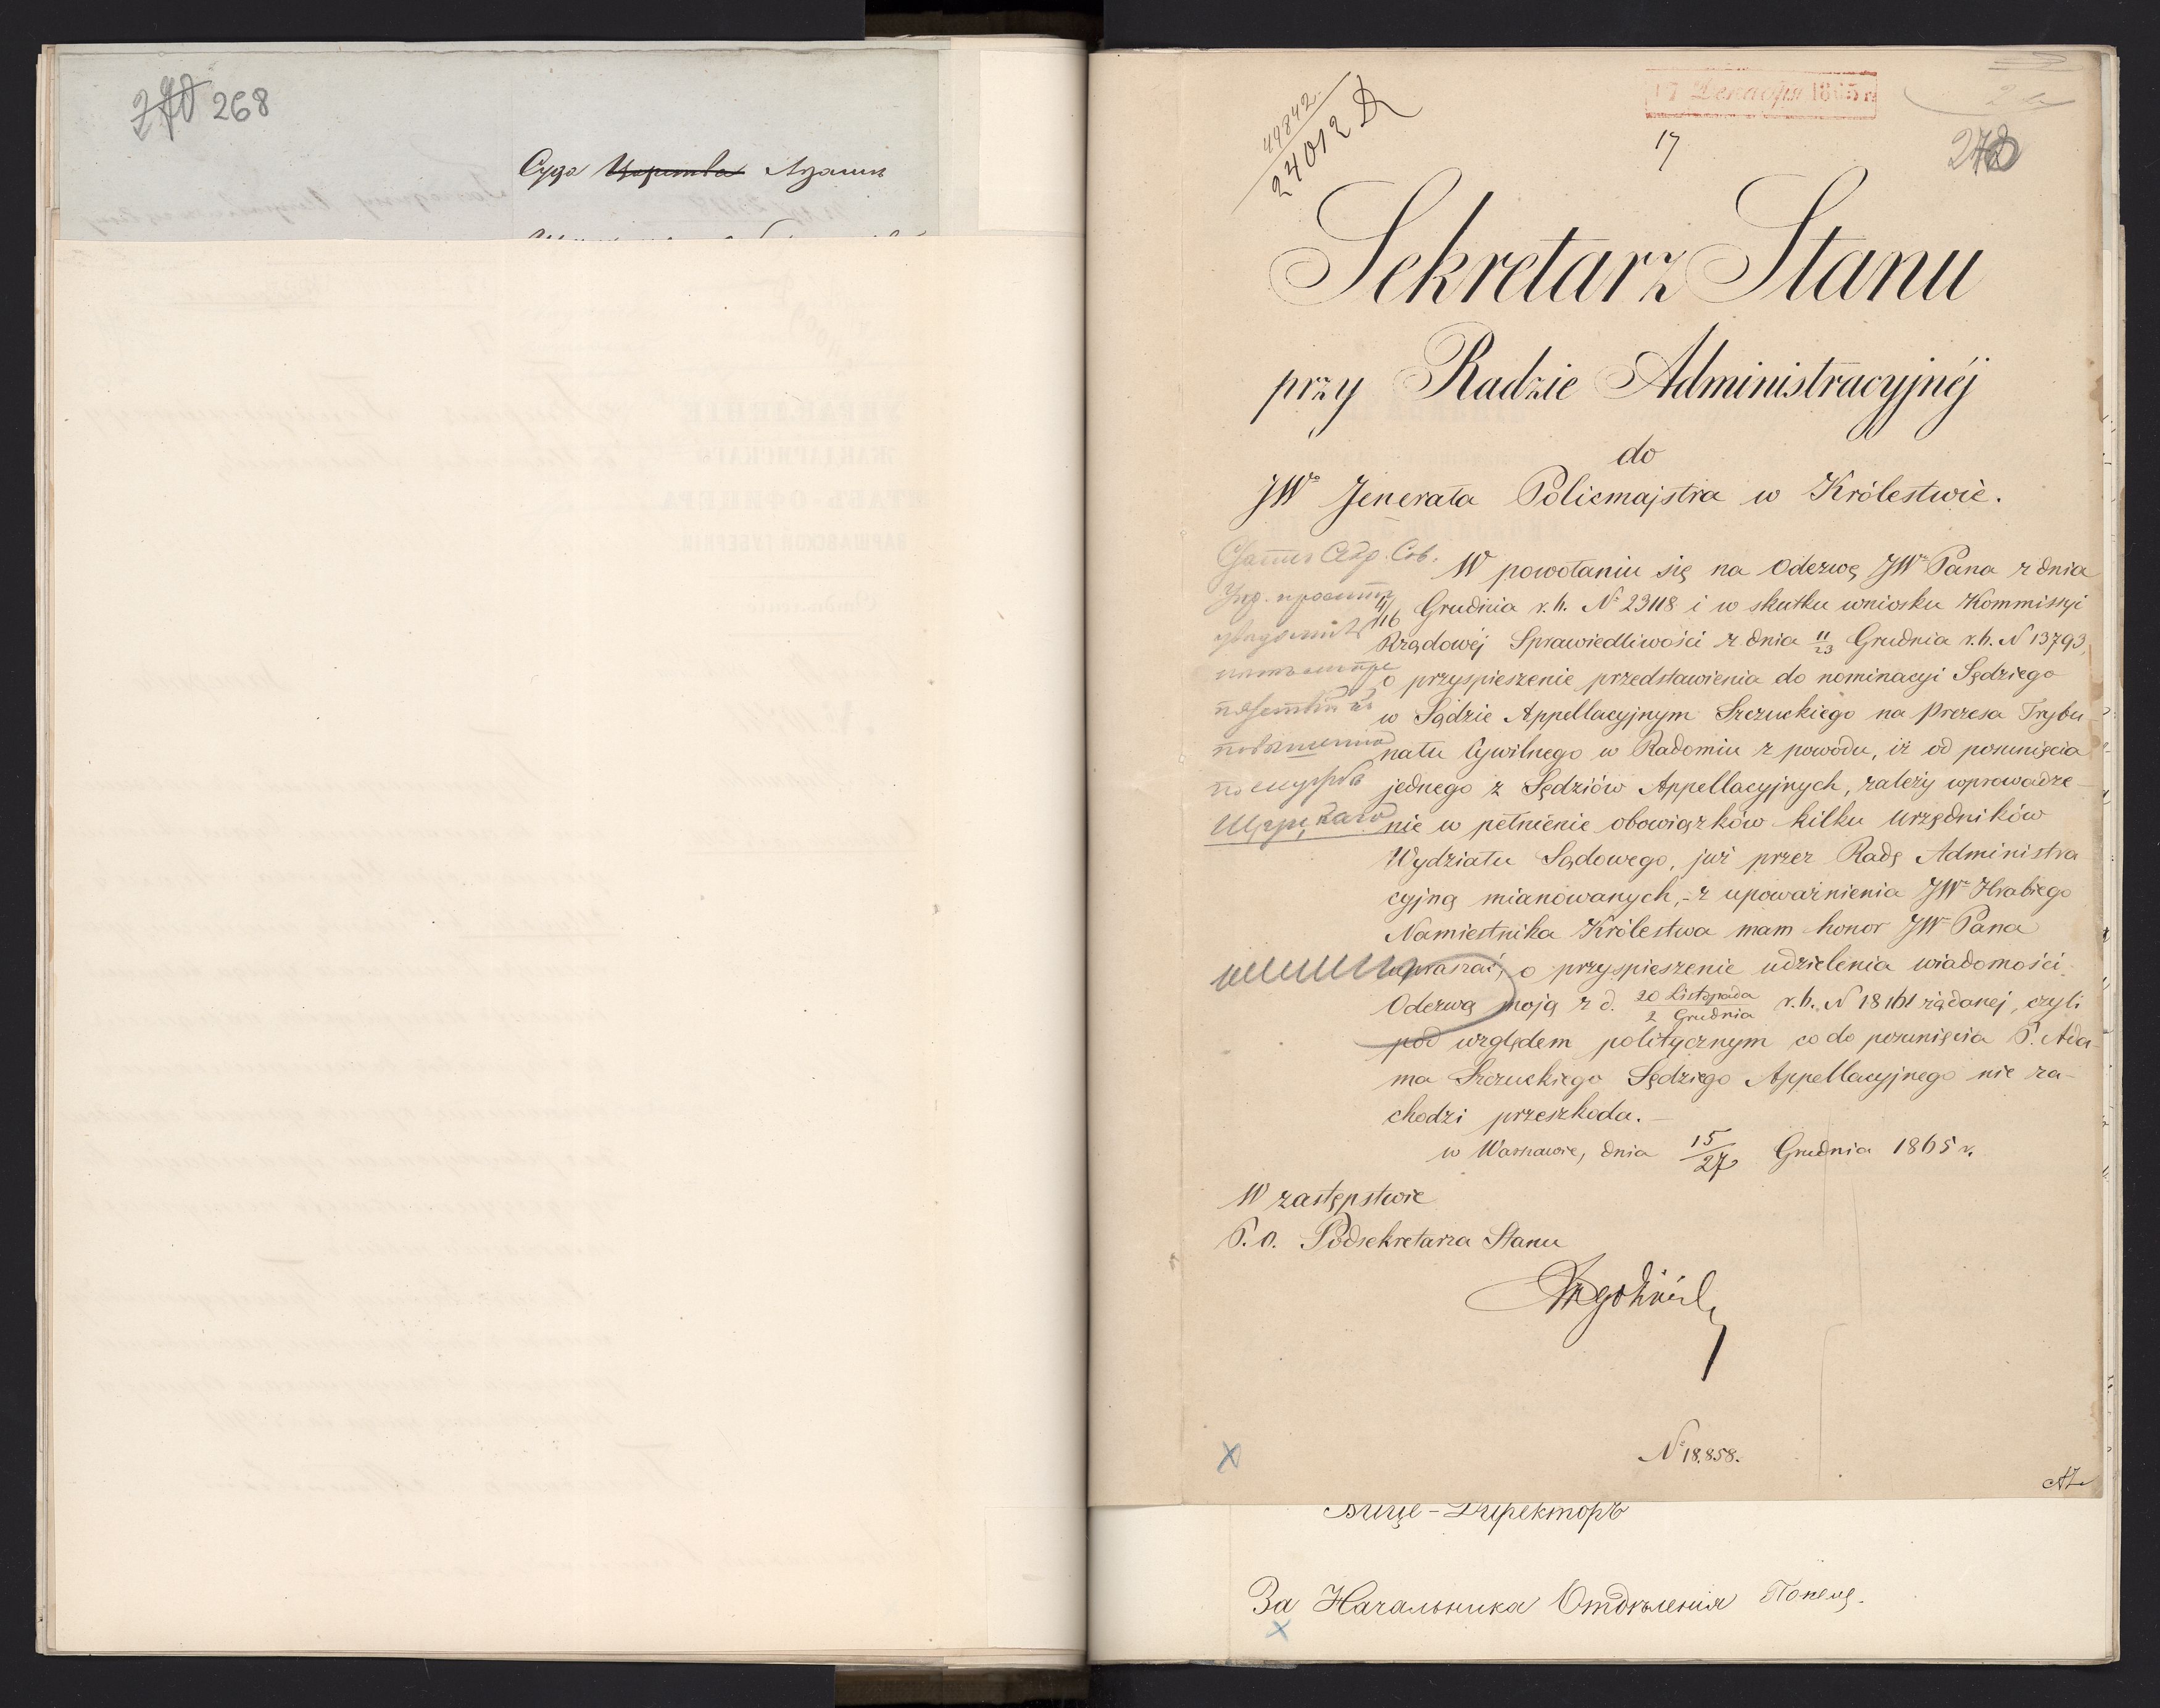 270 268
Суда Царства Адамъ
49842.
24012
17 Декабря 1865 г.
17
Sekretarz Stanu
przy Radzie Administracyjnéj
do
JWo Jenerała Policmajstra w Królestwie.
W powołaniu się na Odezwę JWo Pana z dnia
4/16 Grudnia r. b. No 23118 i w skutku wniosku Kommissyi
Rządowéj Sprawiedliwości z dnia 11/23 Grudnia r. b. N 13793,
o przyspieszenie przedstawienia do nominacyi Sędziego
w Sądzie Appellacyjnym Szczuckiego na Prezesa Trybu-
nału Cywilnego w Radomiu z powodu, iż od posunięcia
jednego z Sędziów Appellacyjnych, zależy wprowadze-
nie w pełnienie obowiązków kilku Urzędników
Wydziału Sądowego, już przez Radę Administra
cyjną mianowanych, - z upoważnienia JWo Hrabiego
Namiestnika Królestwa mam honor JWo Pana
upraszać, o przyspieszenie udzielenia wiadomości
Odezwą moją z d. 20 Listopada / 2 Grudnia r. b. N 18161 żądanej, czyli
pod względem politycznym co do posunięcia P. Ada-
ma Szczuckiego Sędziego Appellacyjnego nie za-
chodzi przeszkoda. -
w Warszawie, dnia 15/27 Grudnia 1865 r.
W zastępstwie
P. O. Podsekretarza Stanu
No 18.858.
Вице-Директоръ
За Начальника Отдѣленія